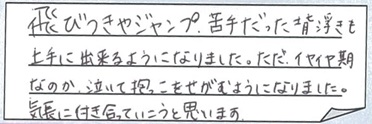 飛びつきやジャンプ、苦手だった背浮きも
上手に出来るようになりました。ただ、イヤイヤ期
なのか、泣いて抱っこをせがむようになりました。
気長に付き合っていこうと思います。